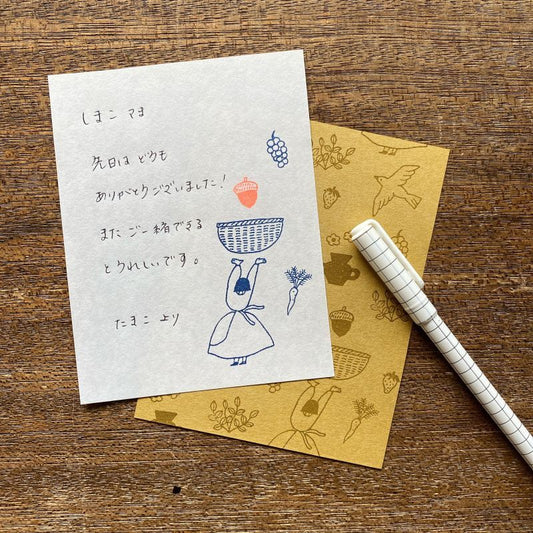 しまこ さま
先日は どうも
ありがとうございました!
また ご一緒できる
とうれしいです。
たまこ より